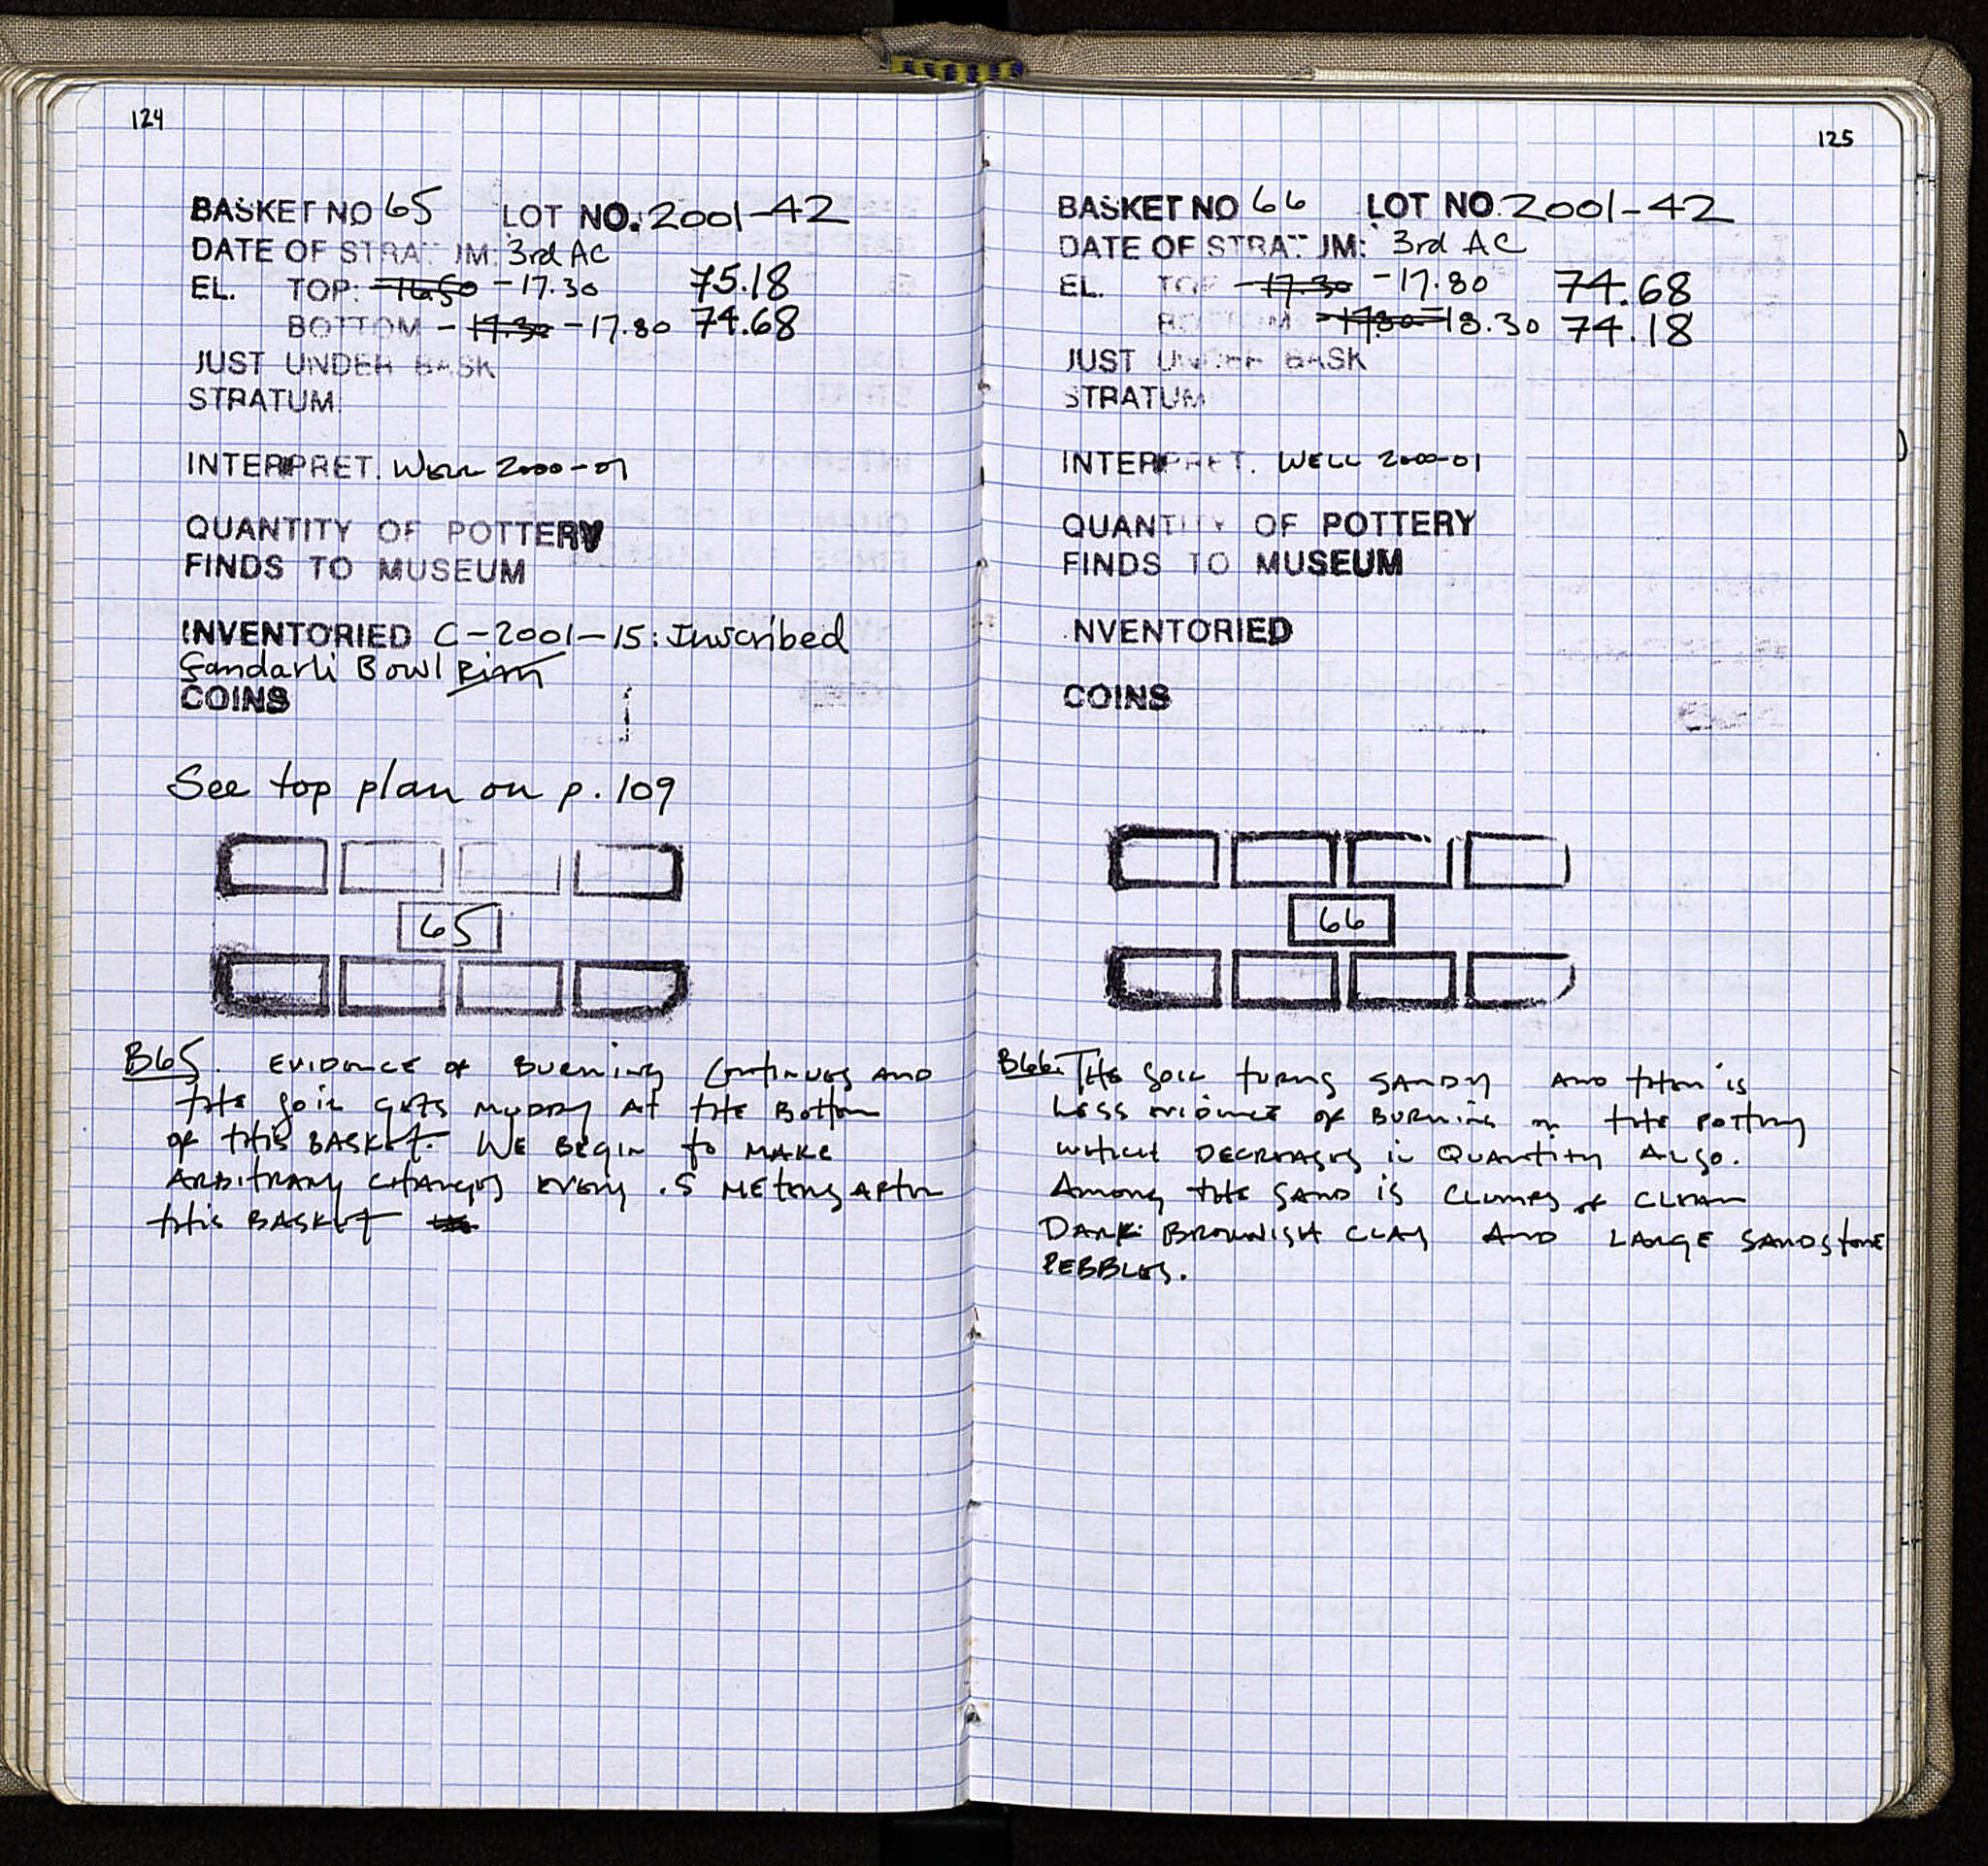 124
BASKET NO 65 LOT NO. 2001-42
DATE OF STRATUM: 3rd AC
EL. TOP: -16.50 -17.30 75.18
BOTTOM -17.30 -17.80 74.68
JUST UNDER BASK
STRATUM:
INTERPRET. WELL 2000-01
QUANTITY OF POTTERY
FINDS TO MUSEUM
INVENTORIED C-2001-15: Inscribed
Çandarli Bowl Rim
COINS
See top plan on p. 109
65
B65. EVIDENCE OF BURNING CONTINUES AND
THE SOIL GETS MUDDY AT THE BOTTOM
OF THIS BASKET. WE BEGIN TO MAKE
ARBITRARY CHANGES EVERY .5 METERS AFTER
THIS BASKET
125
BASKET NO 66 LOT NO. 2001-42
DATE OF STRATUM: 3rd AC
EL. TOP -17.30 -17.80 74.68
BOTTOM -17.80 -18.30 74.18
JUST UNDER BASK
STRATUM
INTERPRET. WELL 2000-01
QUANTITY OF POTTERY
FINDS TO MUSEUM
INVENTORIED
COINS
66
B66. THE SOIL TURNS SANDY AND THERE IS
LESS EVIDENCE OF BURNING ON THE POTTERY
WHICH DECREASES IN QUANTITY ALSO.
AMONG THE SAND IS CLUMPS OF CLEAN
DARK BROWNISH CLAY AND LARGE SANDSTONE
PEBBLES.